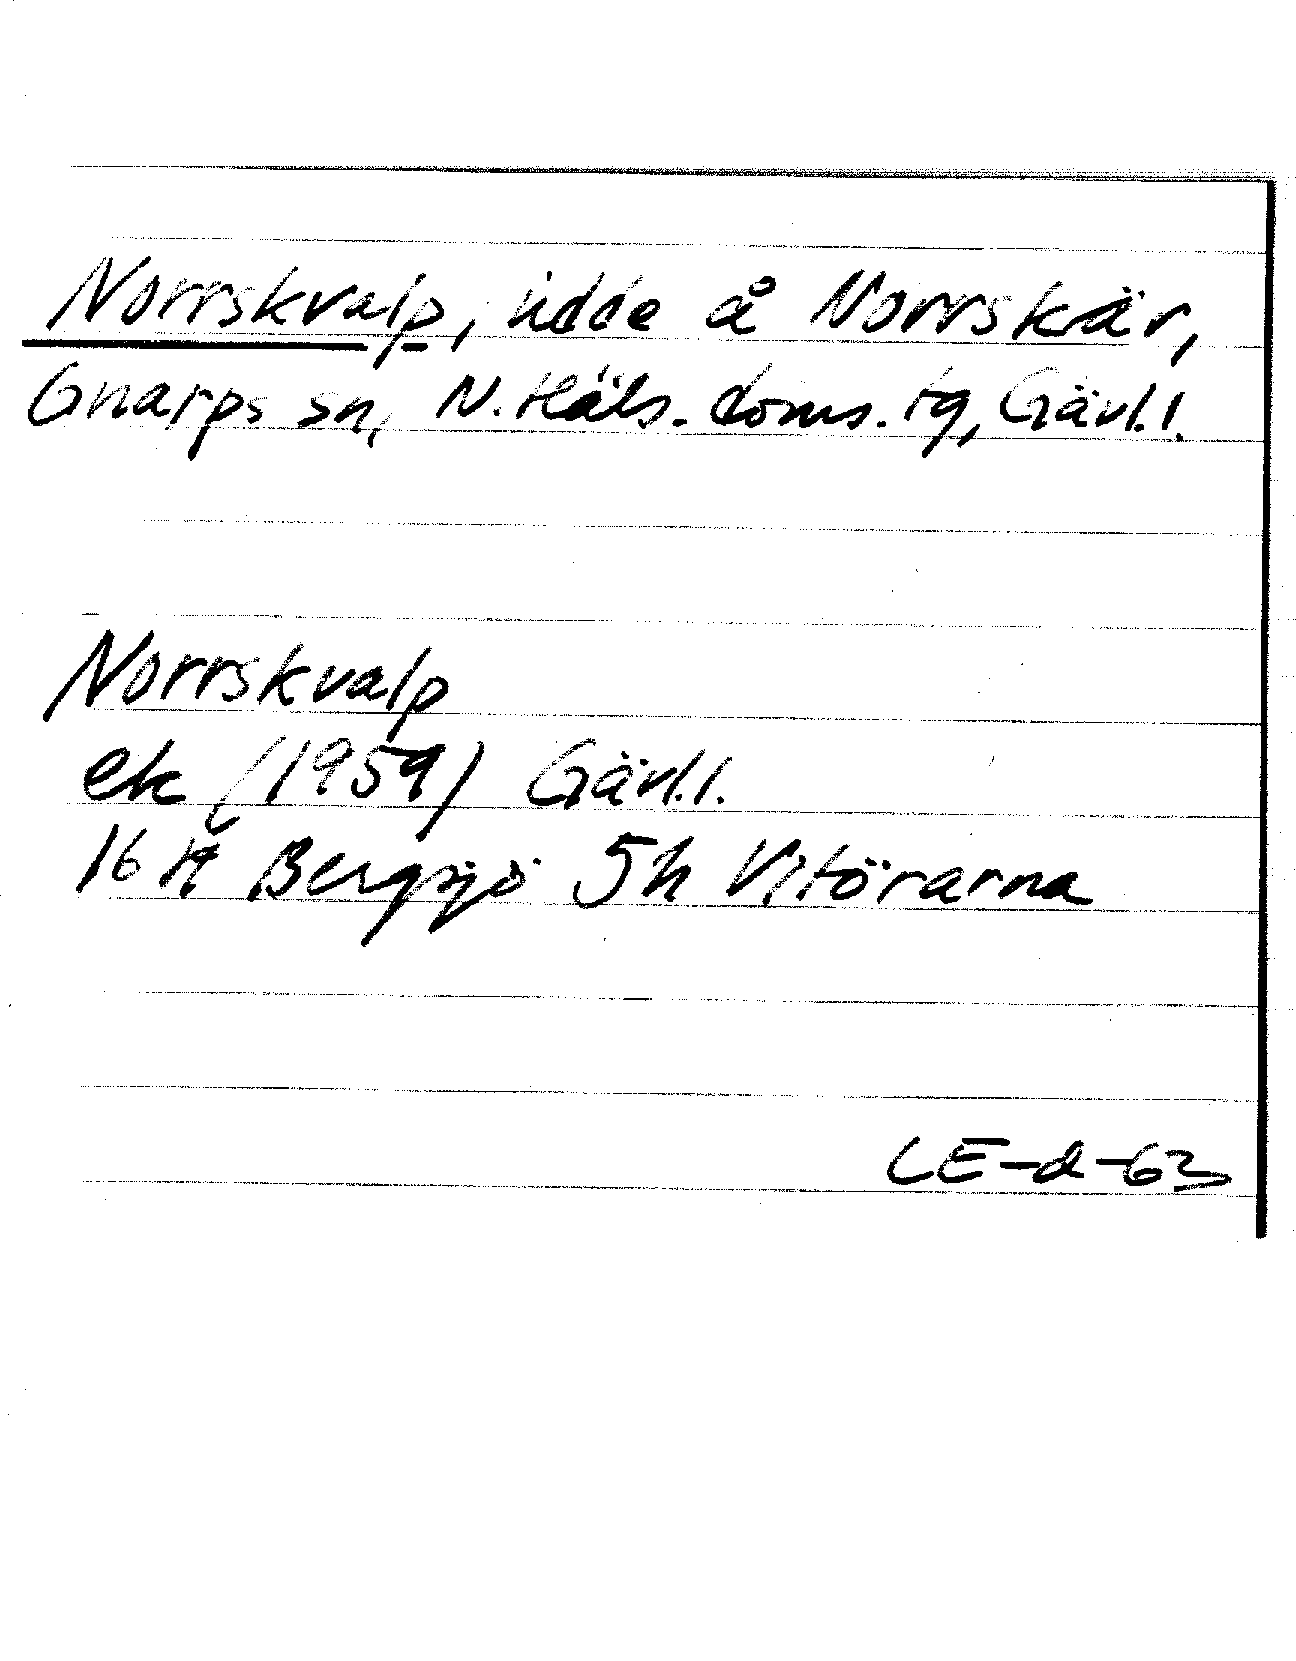 Norrskvalp, udde å Norrskär,
Gnarps sn, N. Häls. doms. tg, Gävl. l.
Norrskvalp
ek (1959) Gävl. l.
16 H Bergsjö 5h Vitörarna
CE-d-63